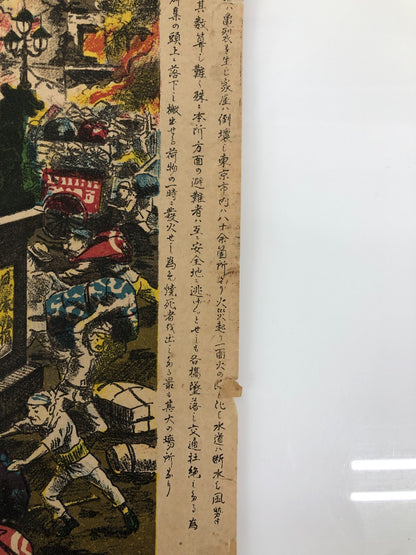 ハ亀裂を生じ家屋ハ倒壊し東京市内ハ八十余箇所より火災起り一面火の と化し水道ハ断水し風
其数算し難く殊に本所方面の避難者ハ互に安全地へ逃げんとせしも各橋墜落し交通杜絶しあるる為
群集の頭上に落下し搬出せる荷物の一時に発火せし為め焼死者 出しある最も其大の場所なり